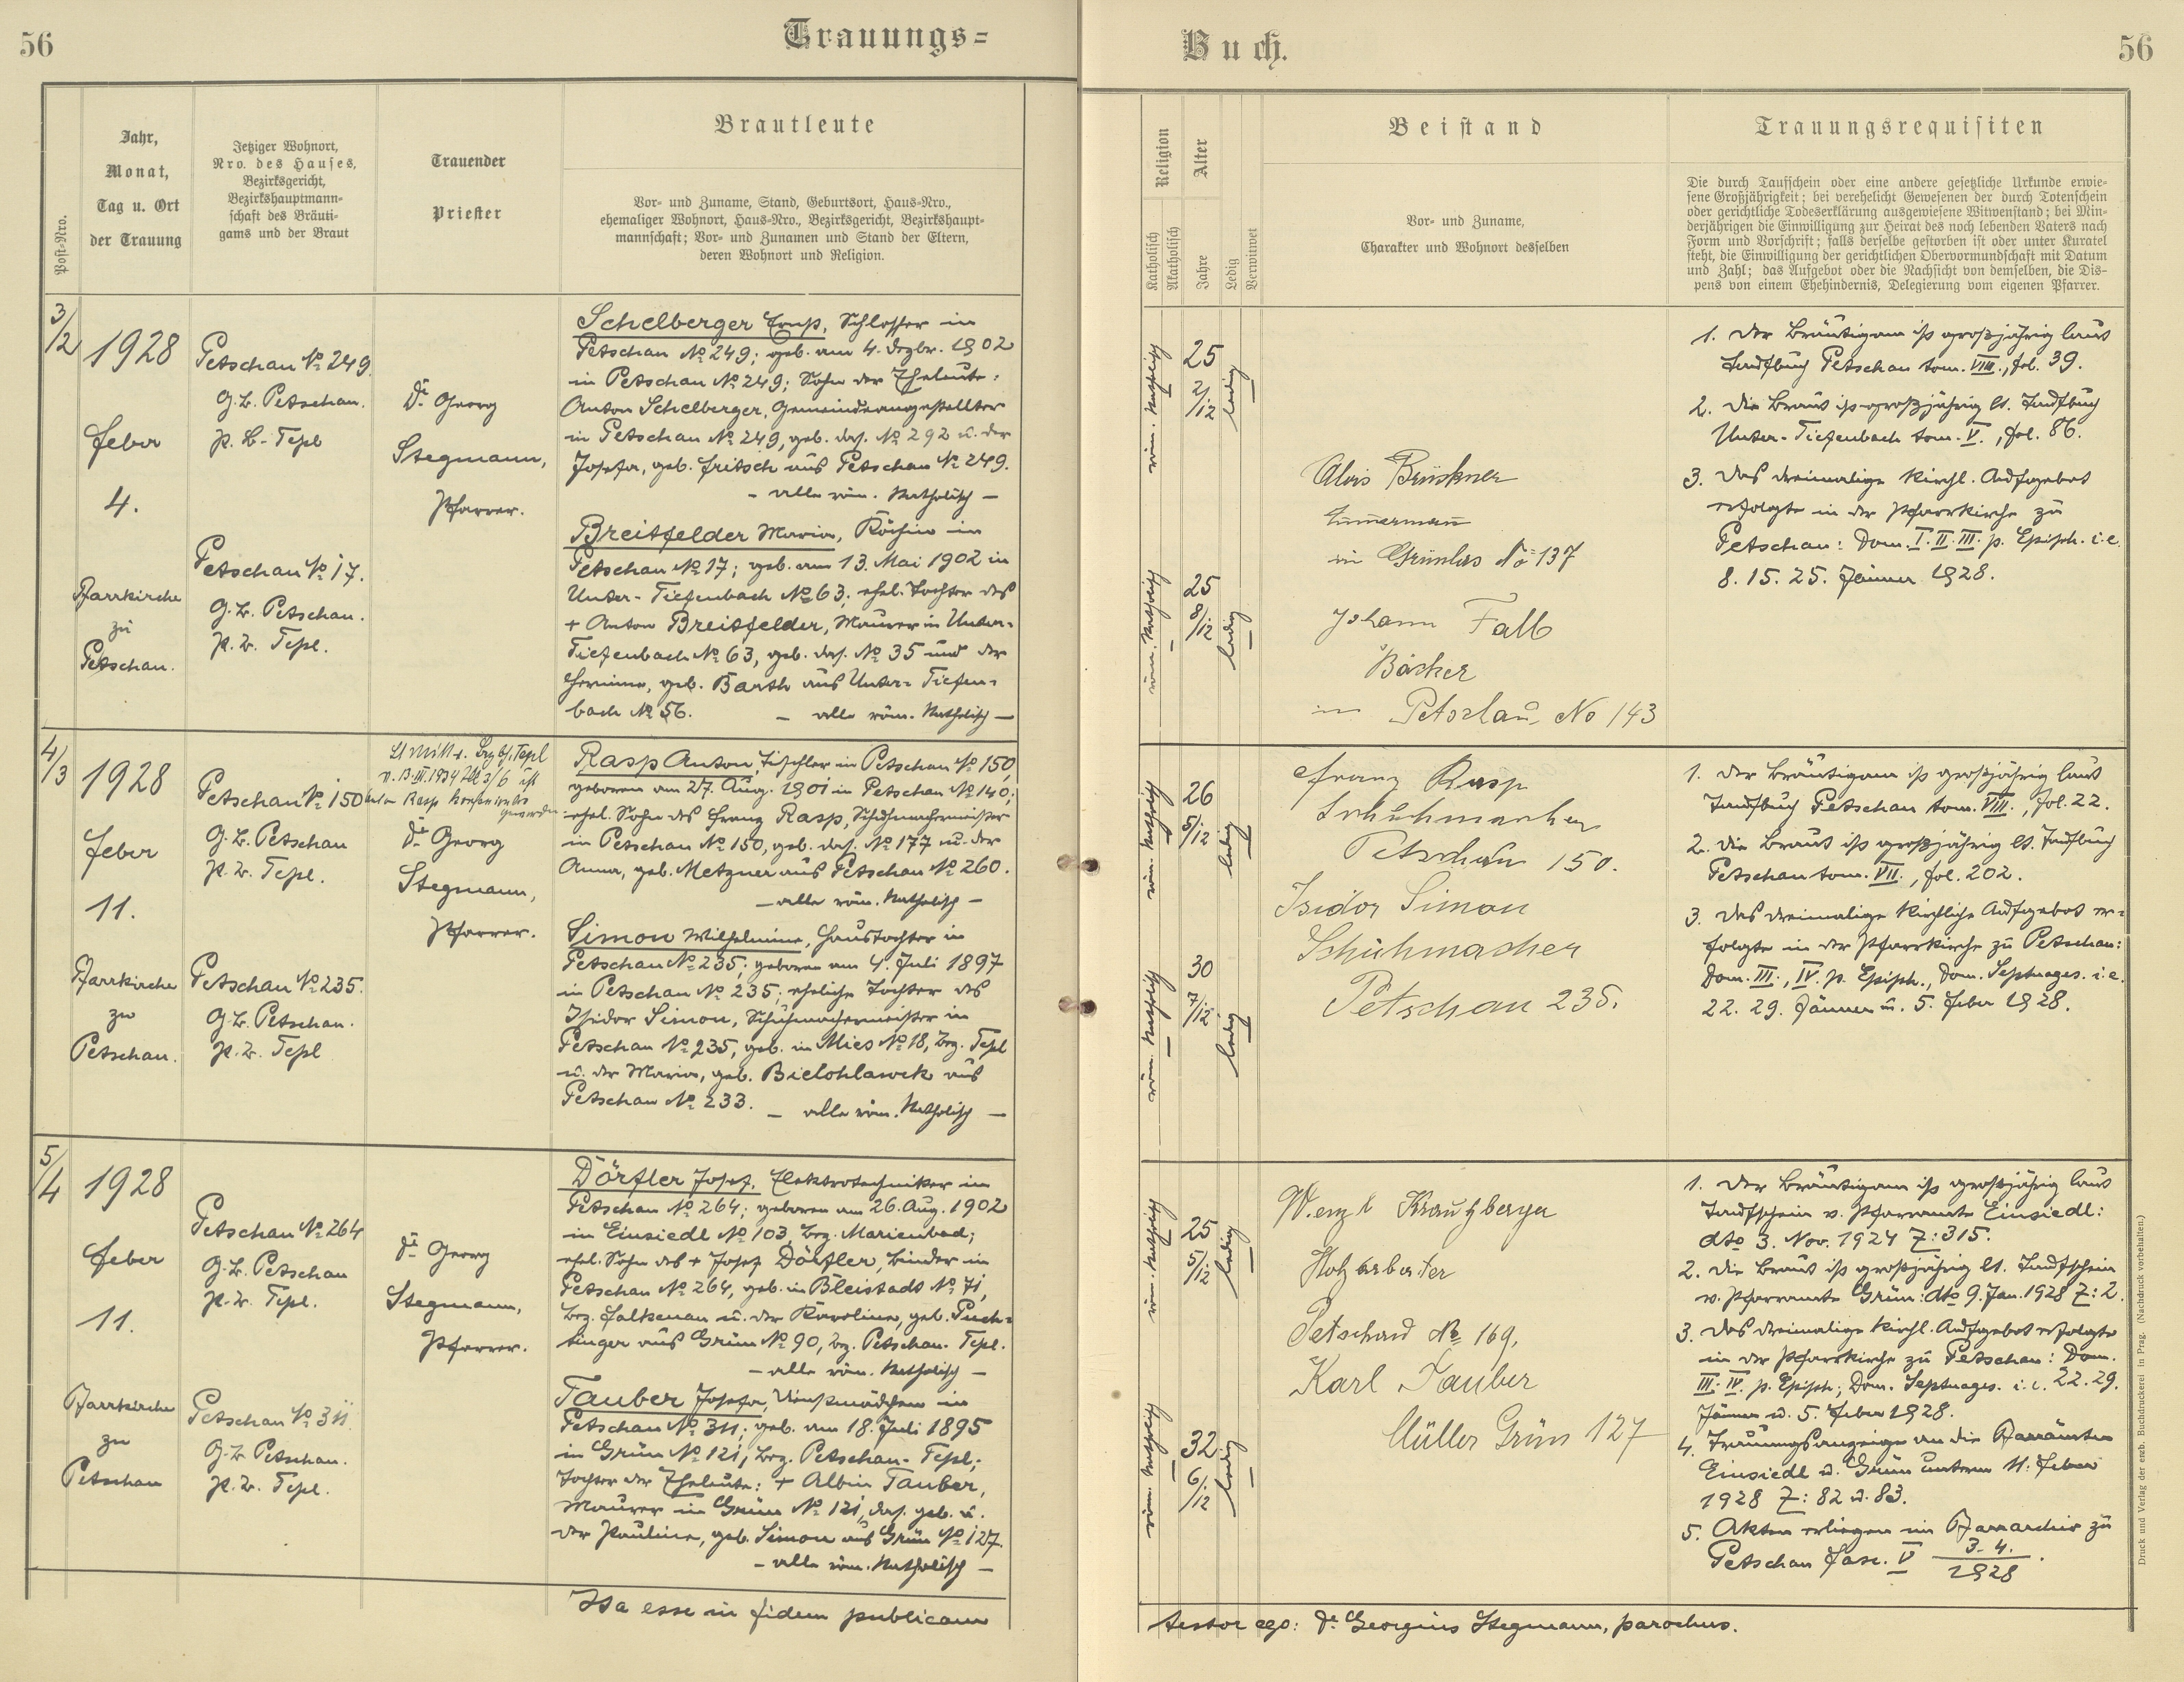 56
Trauungs=
Buch.
56
Post-Nro.
Jahr,
Monat,
Tag u. Ort
der Trauung
Jetziger Wohnort,
Nro. des Hauses,
Bezirksgericht,
Bezirkshauptmann-
schaft des Bräuti-
gams und der Braut
Trauender
Priester
Brautleute
Vor- und Zuname, Stand, Geburtsort, Haus-Nro.,
ehemaliger Wohnort, Haus-Nro., Bezirksgericht, Bezirkshaupt-
mannschaft; Vor- und Zunamen und Stand der Eltern,
deren Wohnort und Religion.
Religion
Katholisch
Akatholisch
Alter
Jahre
Ledig
Verwitwet
Beistand
Vor- und Zuname,
Charakter und Wohnort desselben
Trauungsrequisiten
Die durch Taufschein oder eine andere gesetzliche Urkunde erwie-
sene Großjährigkeit; bei verehelicht Gewesenen der durch Totenschein
oder gerichtliche Todeserklärung ausgewiesene Witwenstand; bei Min-
derjährigen die Einwilligung zur Heirat des noch lebenden Vaters nach
Form und Vorschrift; falls derselbe gestorben ist oder unter Kuratel
steht, die Einwilligung der gerichtlichen Obervormundschaft mit Datum
und Zahl; das Aufgebot oder die Nachsicht von demselben, die Dis-
pens von einem Ehehindernis, Delegierung vom eigenen Pfarrer.
3/2
1928
feber
4.
Pfarrkirche
zu
Petschau.
Petschau No 249.
G. B. Petschau.
p. B. Tepl
Petschau No 17.
G. B. Petschau.
p. B. Tepl.
Dr. Georg
Stegmann,
Pfarrer.
Schelberger Ernst, Schlosser in
Petschau No 249; geb. am 4. Dezbr. 1902
in Petschau No 249; Sohn der Eheleute:
Anton Schelberger, Gemeindeangestellter
in Petschau No 249, geb. das. No 292 u. der
Josefa, geb. Fritsch aus Petschau No 249.
- alle röm. Katholisch -
Breitfelder Maria, Köchin in
Petschau No 17; geb. am 13. Mai 1902 in
Unter-Tiefenbach No 63; ehel. Tochter des
+ Anton Breitfelder, Maurer in Unter-
Tiefenbach No 63, geb. das. No 35 und der
Hermine, geb. Barth aus Unter-Tiefen-
bach No 56. - alle röm. Katholisch -
röm. Katholisch
25
2/12
ledig
röm. Katholisch
25
8/12
ledig
Alois Brückner
Zimmermann
in Grünlas No 137
Johann Falb
Bäcker
in Petschau No 143
1. Der Bräutigam ist großjährig laut
Taufbuch Petschau tom. VIII., fol. 39.
2. Die Braut ist großjährig lt. Taufbuch
Unter-Tiefenbach tom. V., fol. 86.
3. Das dreimalige kirchl. Aufgebot
erfolgte in der Pfarrkirche zu
Petschau: Dom. I. II. III. p. Epiph. i. e.
8. 15. 25. Jänner 1928.
4/3
1928
feber
11.
Pfarrkirche
zu
Petschau.
Petschau No 150
G. B. Petschau
p. B. Tepl.
Petschau No 235.
G. B. Petschau.
p. B. Tepl
Dr. Georg
Stegmann,
Pfarrer.
Rasp Anton, Tischler in Petschau No 150,
geboren am 27. Aug. 1901 in Petschau No 140;
ehel. Sohn des Franz Rasp, Schuhmachermeister
in Petschau No 150, geb. das. No 177 u. der
Anna, geb. Metzner aus Petschau No 260.
- alle röm. Katholisch -
Simon Wilhelmine, Haustochter in
Petschau No 235; geboren am 4. Juli 1897
in Petschau No 235; eheliche Tochter des
Isidor Simon, Schuhmachermeister in
Petschau No 235, geb. in Mies No 18, Bez. Tepl
u. der Maria, geb. Bielohlawek aus
Petschau No 233. - alle röm. Katholisch -
röm. Katholisch
26
5/12
ledig
röm. Katholisch
30
7/12
ledig
Franz Rasp
Schuhmacher
Petschau 150.
Isidor Simon
Schuhmacher
Petschau 235.
1. Der Bräutigam ist großjährig laut
Taufbuch Petschau tom. VIII., fol. 22.
2. Die Braut ist großjährig lt. Taufbuch
Petschau tom. VII., fol. 202.
3. Das dreimalige kirchliche Aufgebot er-
folgte in der Pfarrkirche zu Petschau:
Dom. III., IV. p. Epiph., Dom. Septuages. i. e.
22. 29. Jänner u. 5. feber 1928.
5/4
1928
feber
11.
Pfarrkirche
zu
Petschau
Petschau No 264
G. B. Petschau
p. B. Tepl.
Petschau No 311
G. B. Petschau.
p. B. Tepl.
Dr. Georg
Stegmann,
Pfarrer.
Dörfler Josef, Elektrotechniker in
Petschau No 264; geboren am 26. Aug. 1902
in Einsiedl No 103, Bez. Marienbad;
ehel. Sohn des + Josef Dörfler, Binder in
Petschau No 264, geb. in Bleistadt No 71,
Bez. Falkenau u. der Karoline, geb. Puch-
tinger aus Grün No 90, Bez. Petschau-Tepl.
- alle röm. Katholisch -
Tauber Josefa, Dienstmädchen in
Petschau No 311; geb. am 18. Juli 1895
in Grün No 121, Bez. Petschau-Tepl;
Tochter der Eheleute: + Albin Tauber,
Maurer in Grün No 121, das. geb. u.
der Pauline, geb. Simon aus Grün No 127.
- alle röm. Katholisch -
röm. Katholisch
25
5/12
ledig
röm. Katholisch
32
6/12
ledig
Wenzl Krautzberger
Holzarbeiter
Petschau No 169,
Karl Tauber
Müller Grün 127
1. Der Bräutigam ist großjährig laut
Taufschein v. Pfarramte Einsiedl:
dto 3. Nov. 1924 Z: 315.
2. Die Braut ist großjährig lt. Taufschein
v. Pfarramte Grün: dto 9. Jan. 1928 Z: 2.
3. Das dreimalige kirchl. Aufgebot erfolgte
in der Pfarrkirche zu Petschau: Dom.
III. IV. p. Epiph; Dom. Septuages. i. e. 22. 29.
Jänner u. 5. feber 1928.
4. Trauungsanzeige an die Pfarrämter
Einsiedl u. Grün unterm 11. feber
1928 Z: 82 u. 83.
5. Akten erliegen im Pfarrarchiv zu
Petschau fasc. V 3-4./1928.
Ita esse in fidem publicam
testor ego: Dr. Georgius Stegmann, parochus.
Druck und Verlag der erzb. Buchdruckerei in Prag. (Nachdruck vorbehalten.)